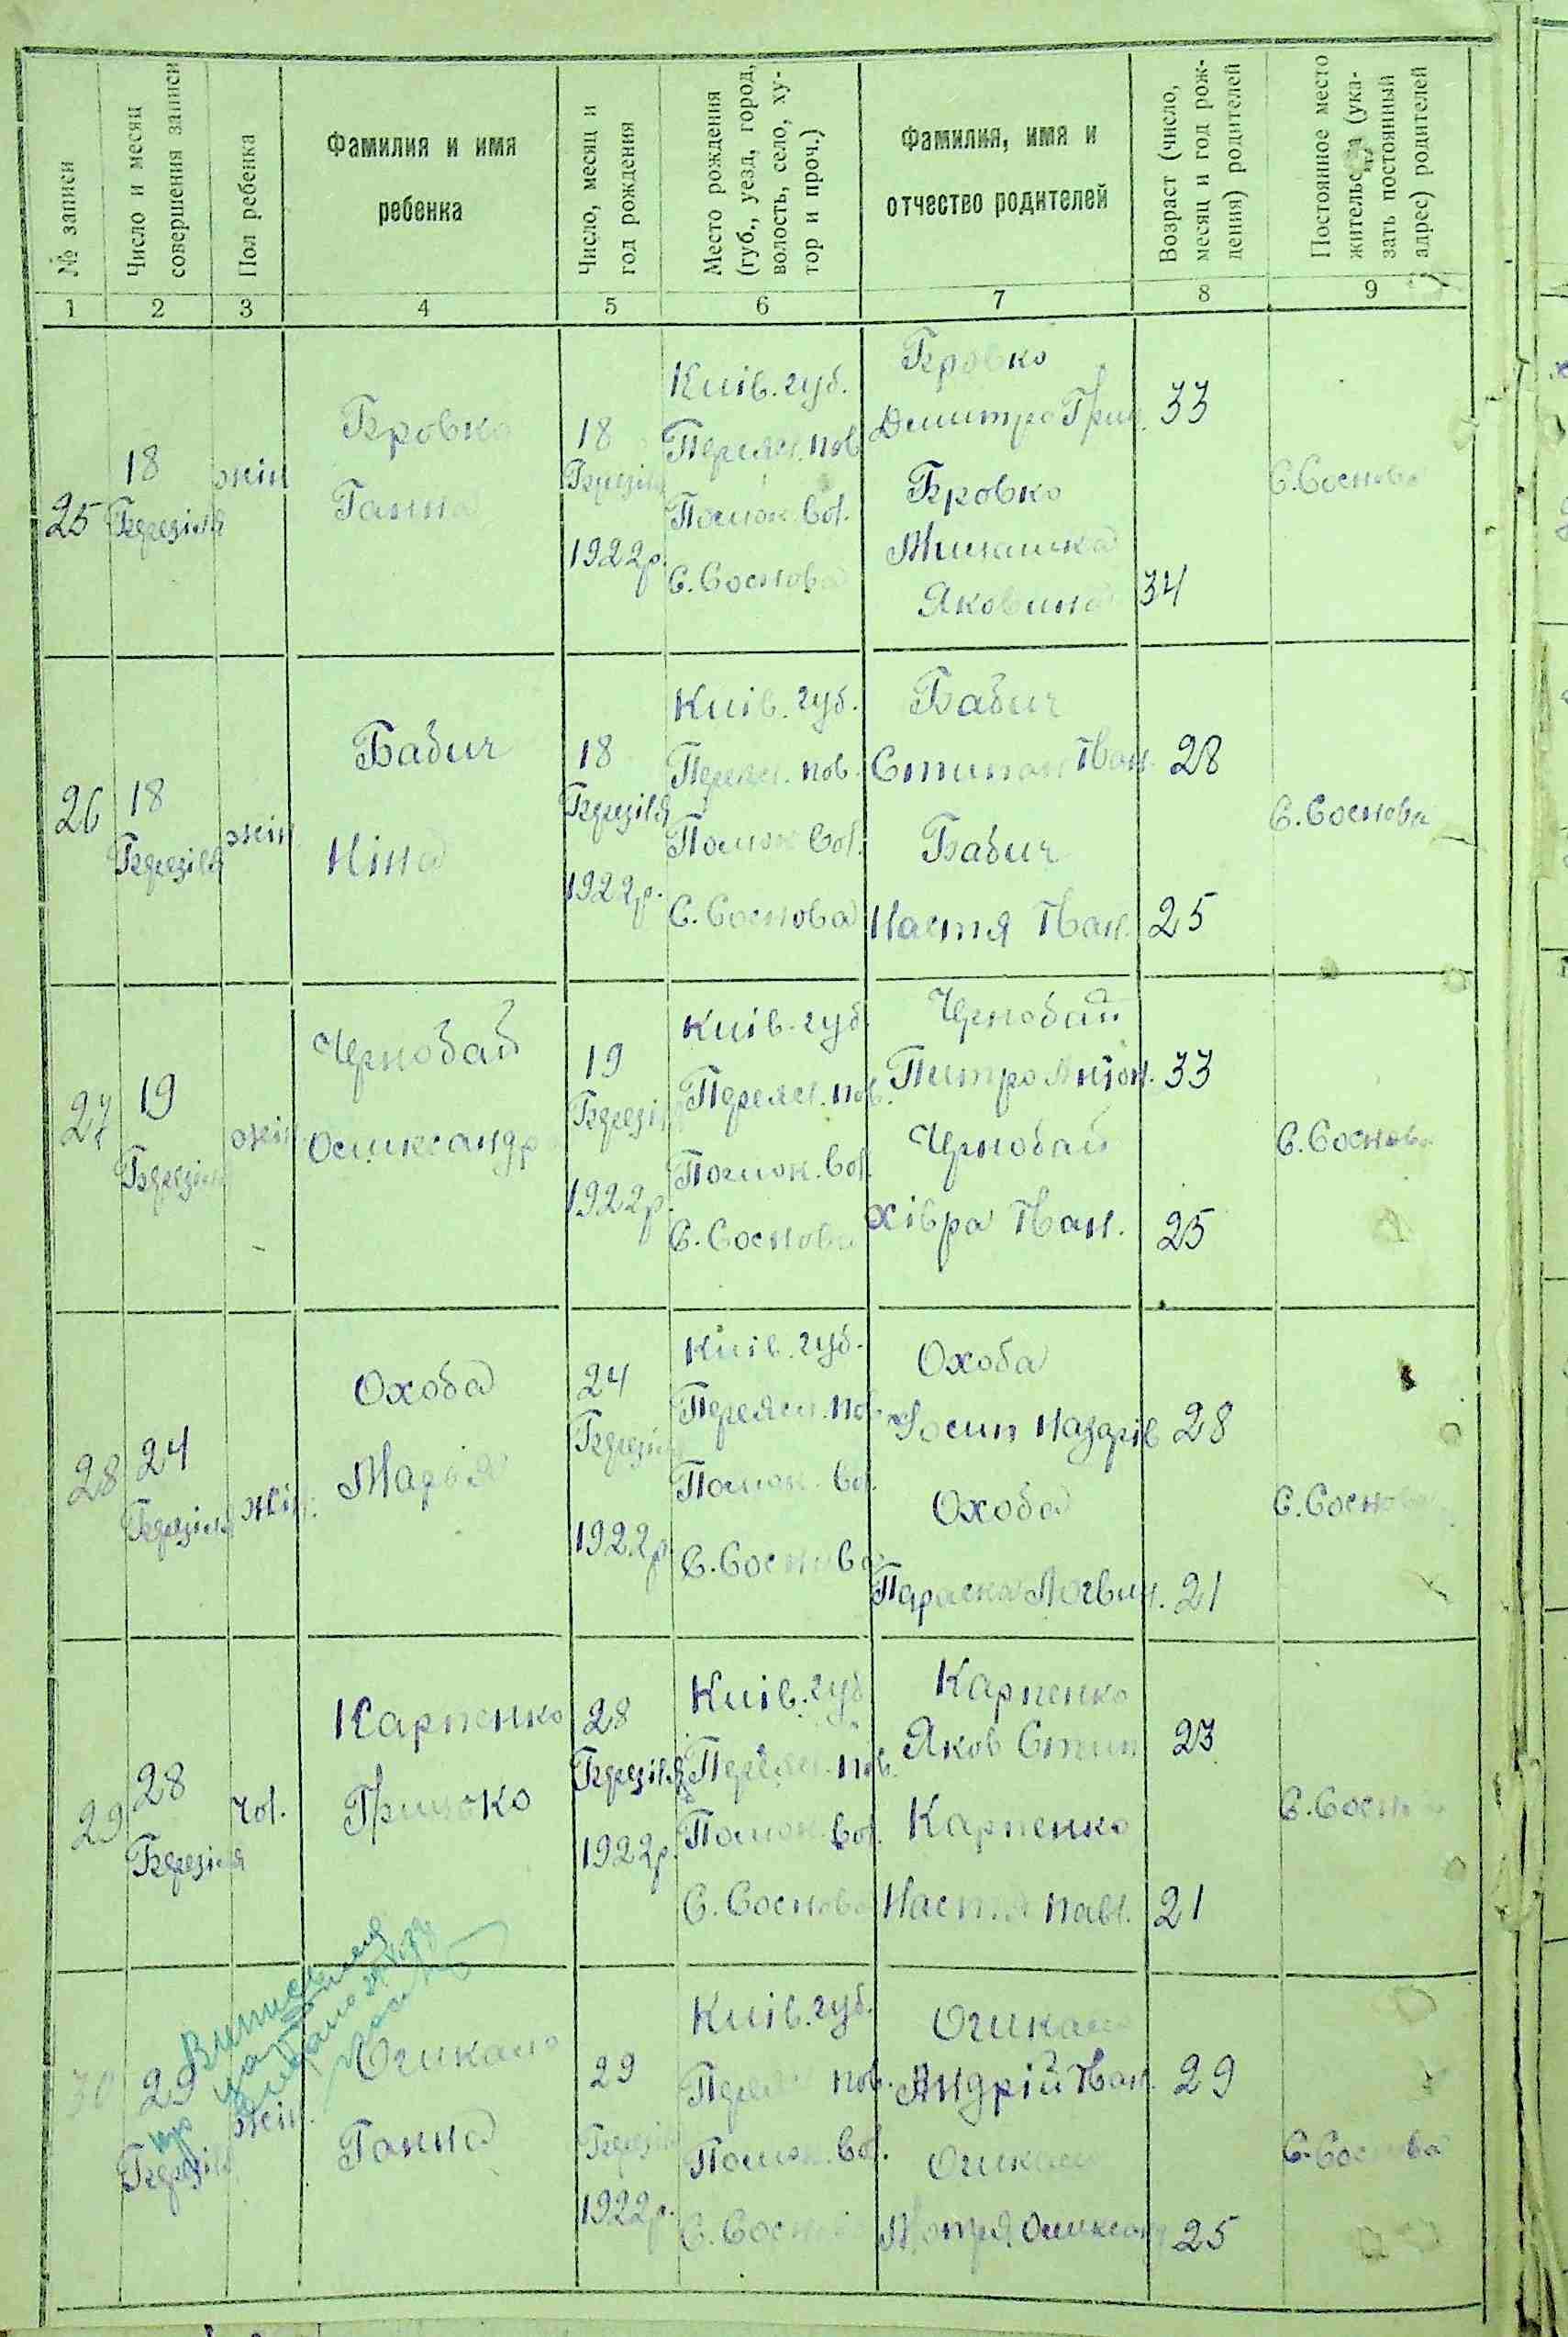 № записи
Число и месяц
совершения записи
Пол ребенка
Фамилия и имя
ребенка
Число, месяц и
год рождения
Место рождения
(губ., уезд, город,
волость, село, ху-
тор и проч.)
Фамилия, имя и
отчество родителей
Возраст (число,
месяц и год рож-
дения) родителей
Постоянное место
жительства (ука-
зать постоянный
адрес) родителей
1 2 3 4 5 6 7 8 9
25
18
Березіля
жін
Бровко
Ганна
18
Березіля
1922р.
Київ. губ.
Переясл. пов.
Помок. вол.
С. Соснова
Бровко
Дмитро Григ.
Бровко
Яковина
33
34
С. Соснова
26
18
Березіля
жін
Бабич
Ніна
18
Березіля
1922р.
Київ. губ.
Переясл. пов.
Помок. вол.
С. Соснова
Бабич
Степан Іван.
Бабич
Настя Іван.
28
25
С. Соснова
27
19
Березіля
жін
Чернобай
Олександр
19
Березіля
1922р.
Київ. губ.
Переясл. пов.
Помок. вол.
С. Соснова
Чернобай
Питро Антон.
Чернобай
Хівра Іван.
33
25
С. Соснова
28
24
Березіля
жін.
Охоба
Марья
24
Березіля
1922р.
Київ. губ.
Переясл. пов.
Помок. вол.
С. Соснова
Охоба
Йосип
Охоба
Параска Логвин.
28
21
С. Соснова
29
28
Березіля
чол.
Карпенко
Грицько
28
Березіля
1922р.
Київ. губ.
Переясл. пов.
Помок. вол.
С. Соснова
Карпенко
Яков Степ
Карпенко
Настя Павл.
23
21
С. Соснова
30
29
Березіля
жін.
Очикало
Ганна
29
Березіля
1922р.
Київ. губ.
Переясл. пов.
Помок. вол.
С. Соснова
Очикало
Андрій Іван.
Очикало
Мотря Олександ
29
25
С. Соснова